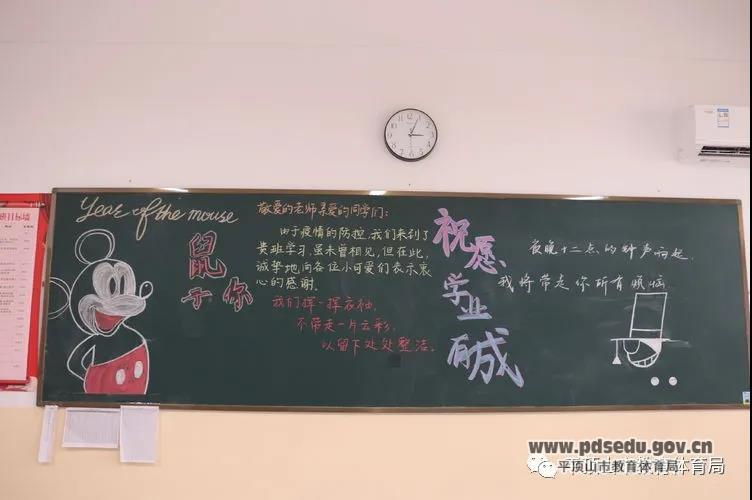 Year of the mouse
鼠于你
敬爱的老师亲爱的同学们：
由于疫情的防控，我们来到了
贵班学习，虽未曾相见，但在此，
诚挚地向各位小可爱们表示衷
心的感谢。
我们挥一挥衣袖，
不带走一片云彩，
以留下处处整洁。
祝愿
学业
有成
夜晚十二点的钟声响起，
我将带走你所有烦恼
班目标墙
www.pdsedu.gov.cn
平顶山市教育体育局